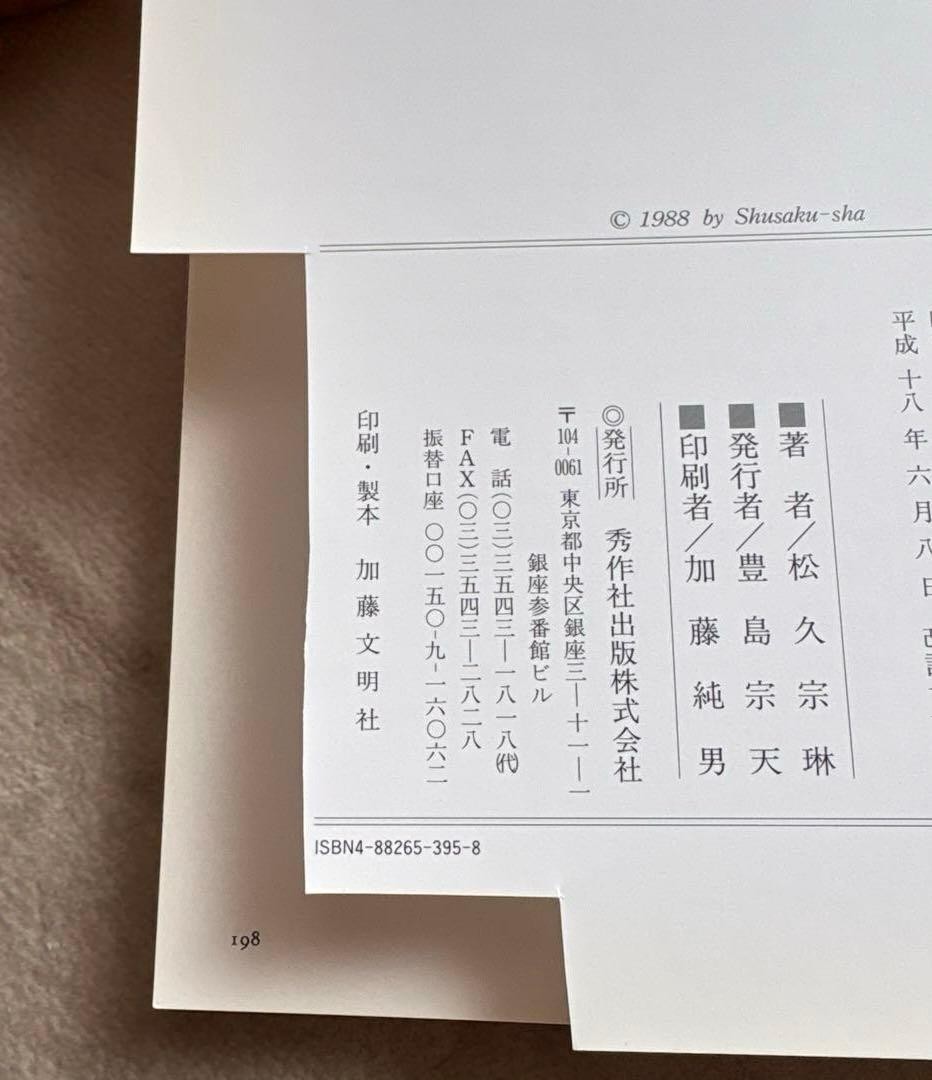 © 1988 by Shusaku-sha
平成十八年六月八日
■著者／松久宗琳
■発行者／豊島宗天
■印刷者／加藤純男
◎発行所 秀作社出版株式会社
〒104-0061 東京都中央区銀座三―十一―一
銀座参番館ビル
電話(〇三)三五四三―一八一八(代)
FAX(〇三)三五四三―二八二八
振替口座 〇〇一五〇-九-一六〇六二
印刷・製本 加藤文明社
ISBN4-88265-395-8
198